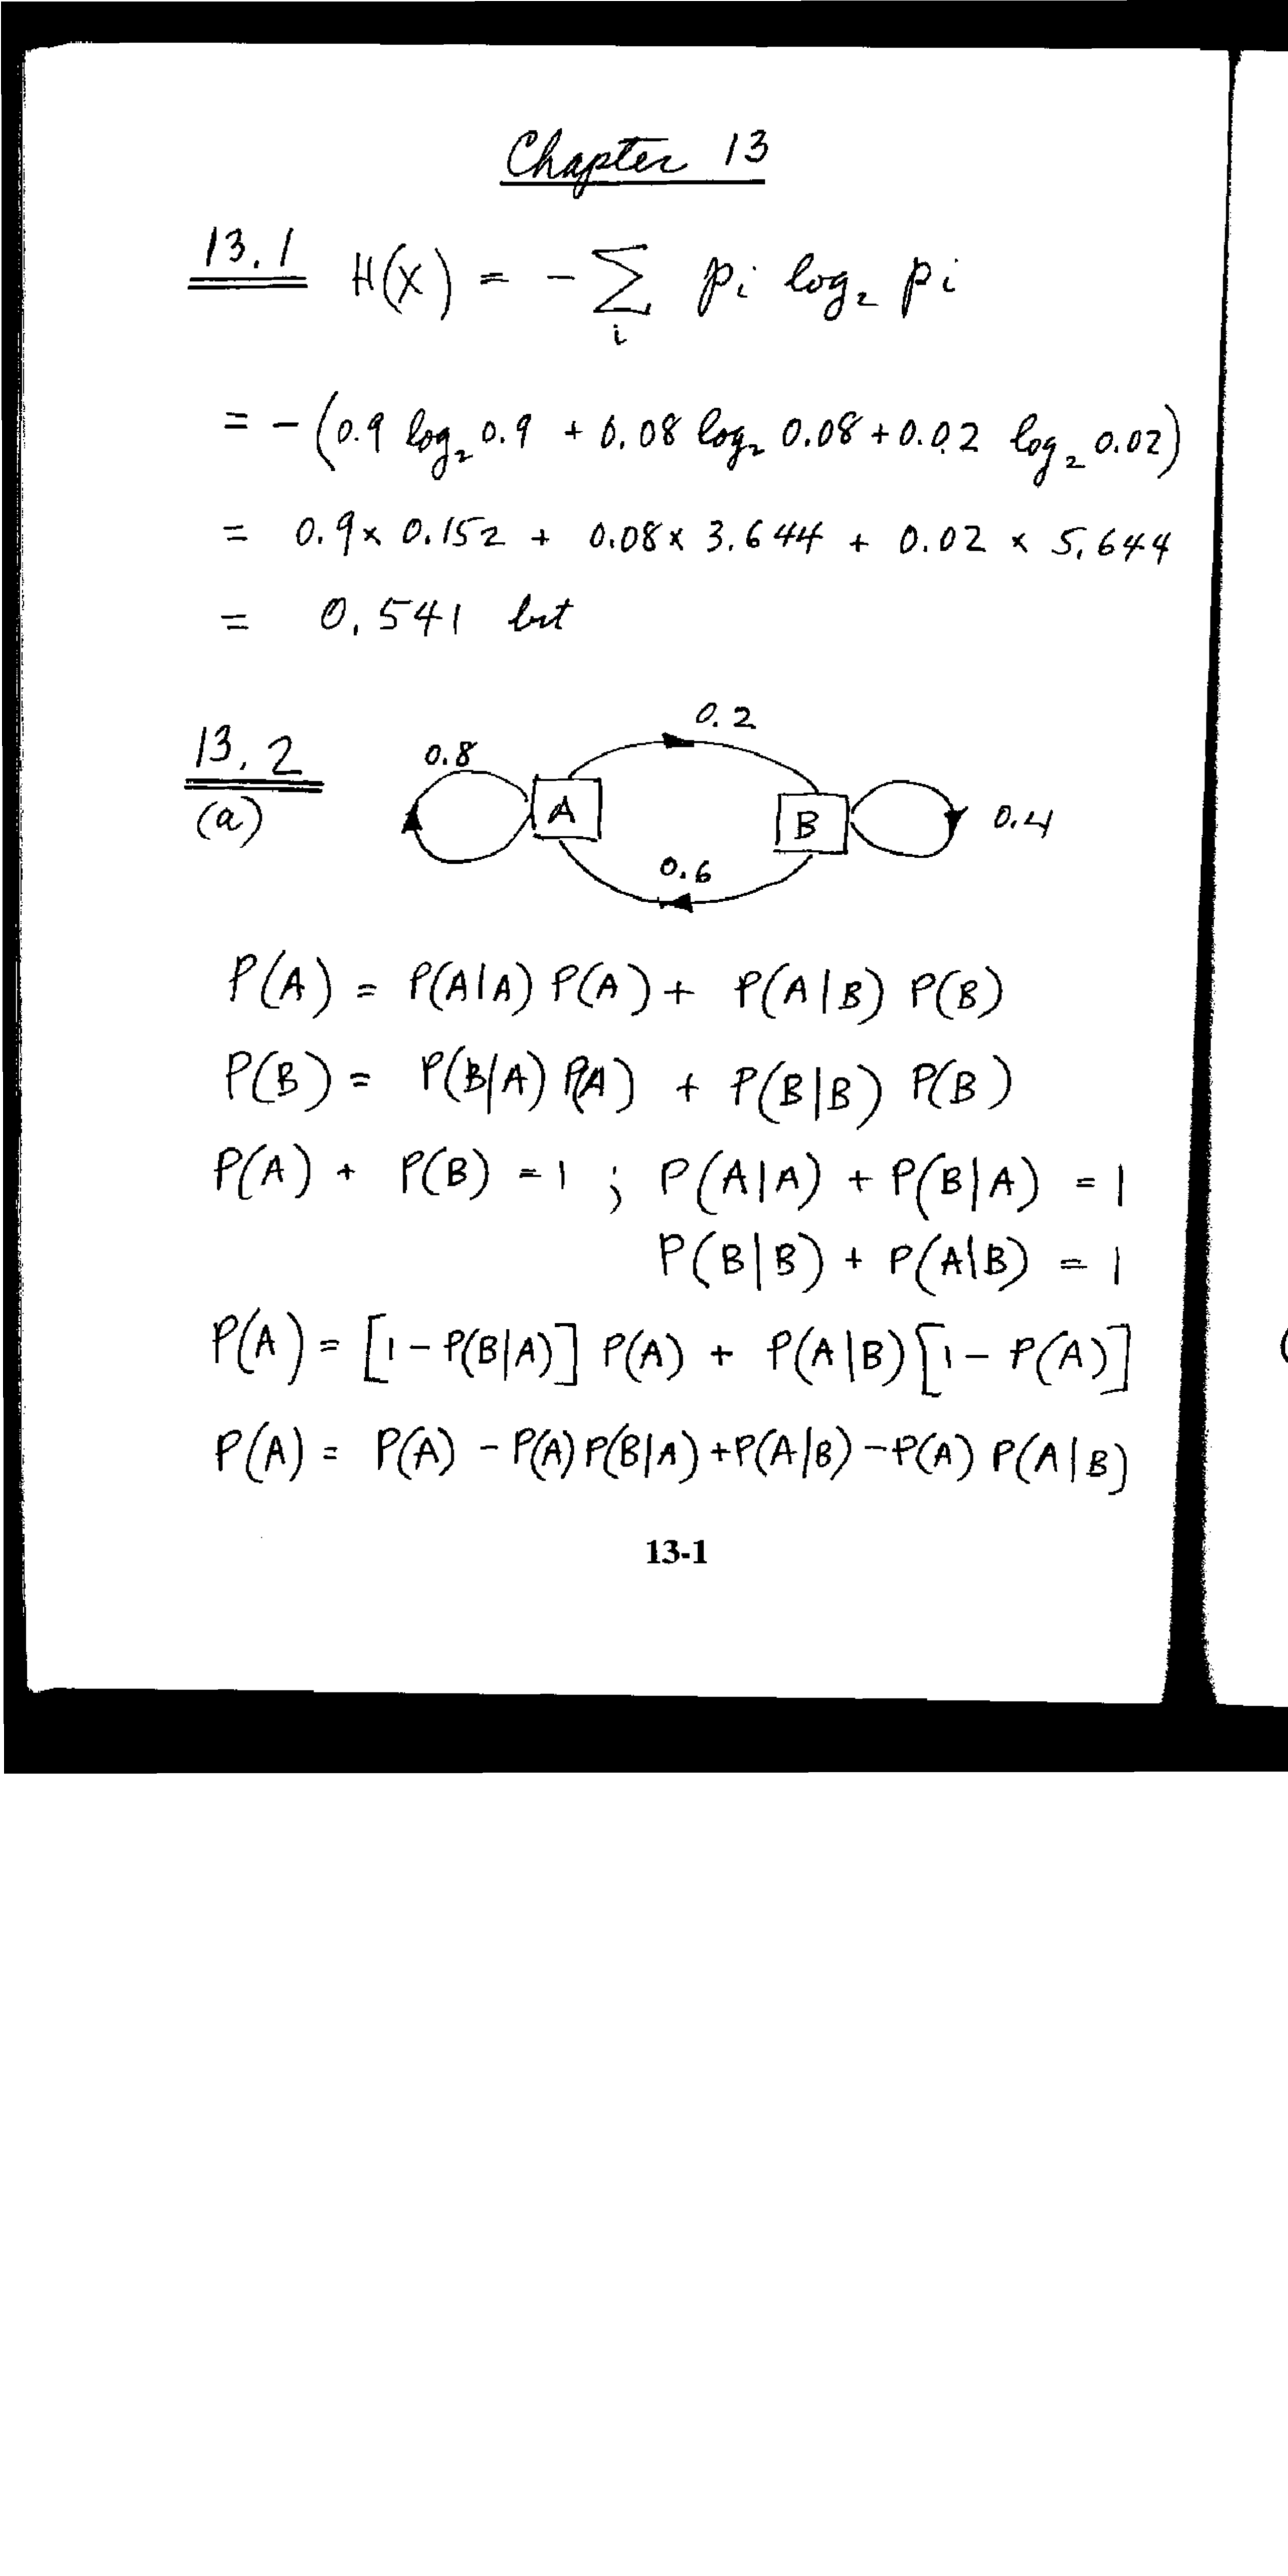 Chapter 13
13.1 H(X) = - ∑ pi log₂ pi
i
= - (0.9 log₂ 0.9 + 0.08 log₂ 0.08 + 0.02 log₂ 0.02)
= 0.9 x 0.152 + 0.08 x 3.644 + 0.02 x 5.644
= 0.541 bit
13.2
(a)
0.2
0.8
A
B
0.4
0.6
P(A) = P(A|A) P(A) + P(A|B) P(B)
P(B) = P(B|A) P(A) + P(B|B) P(B)
P(A) + P(B) = 1 ; P(A|A) + P(B|A) = 1
P(B|B) + P(A|B) = 1
P(A) = [1 - P(B|A)] P(A) + P(A|B) [1 - P(A)]
P(A) = P(A) - P(A) P(B|A) + P(A|B) - P(A) P(A|B)
13-1